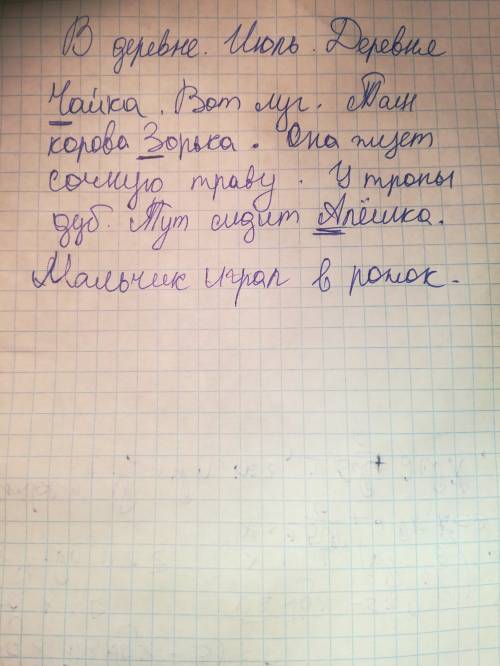 В деревне. Июль. Деревня
Чайка. Вот луг. Там
корова Зорька. Она жуёт
сочную траву. У тропы
дуб. Тут сидит Алёшка.
Мальчик играл в рожок.